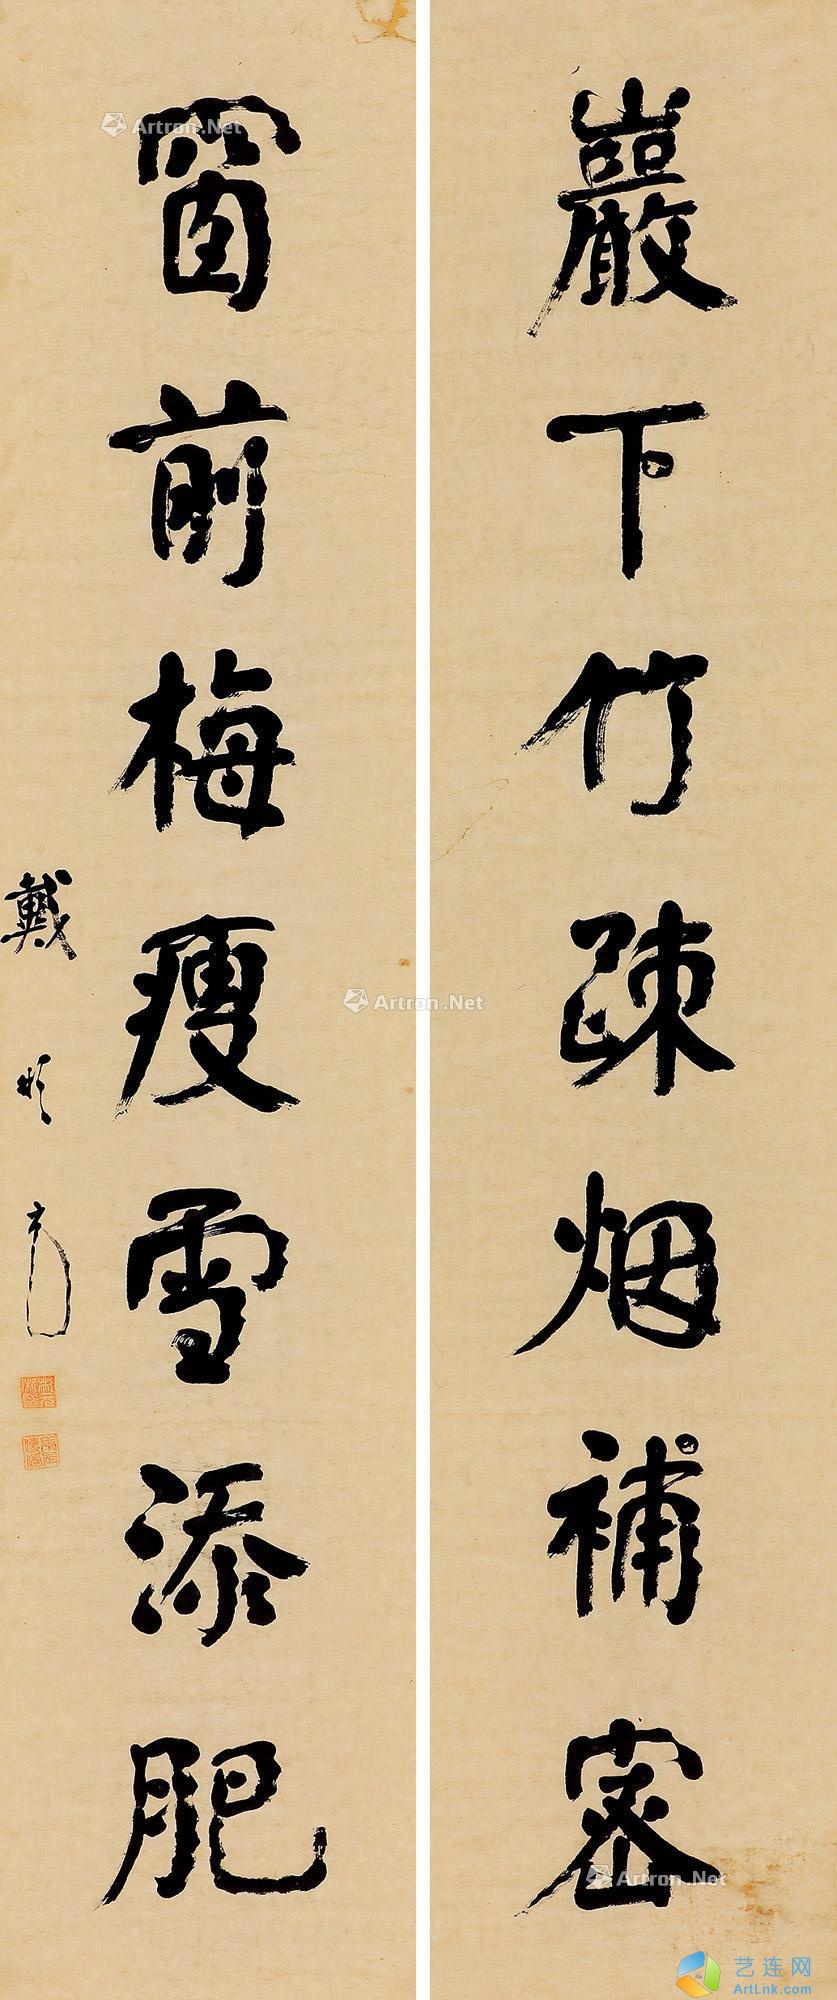 巖下竹疎烟補密
窗前梅瘦雪添肥
戴明
Artron.Net
Artron.Net
Artron.Net
艺连网
ArtLnk.com